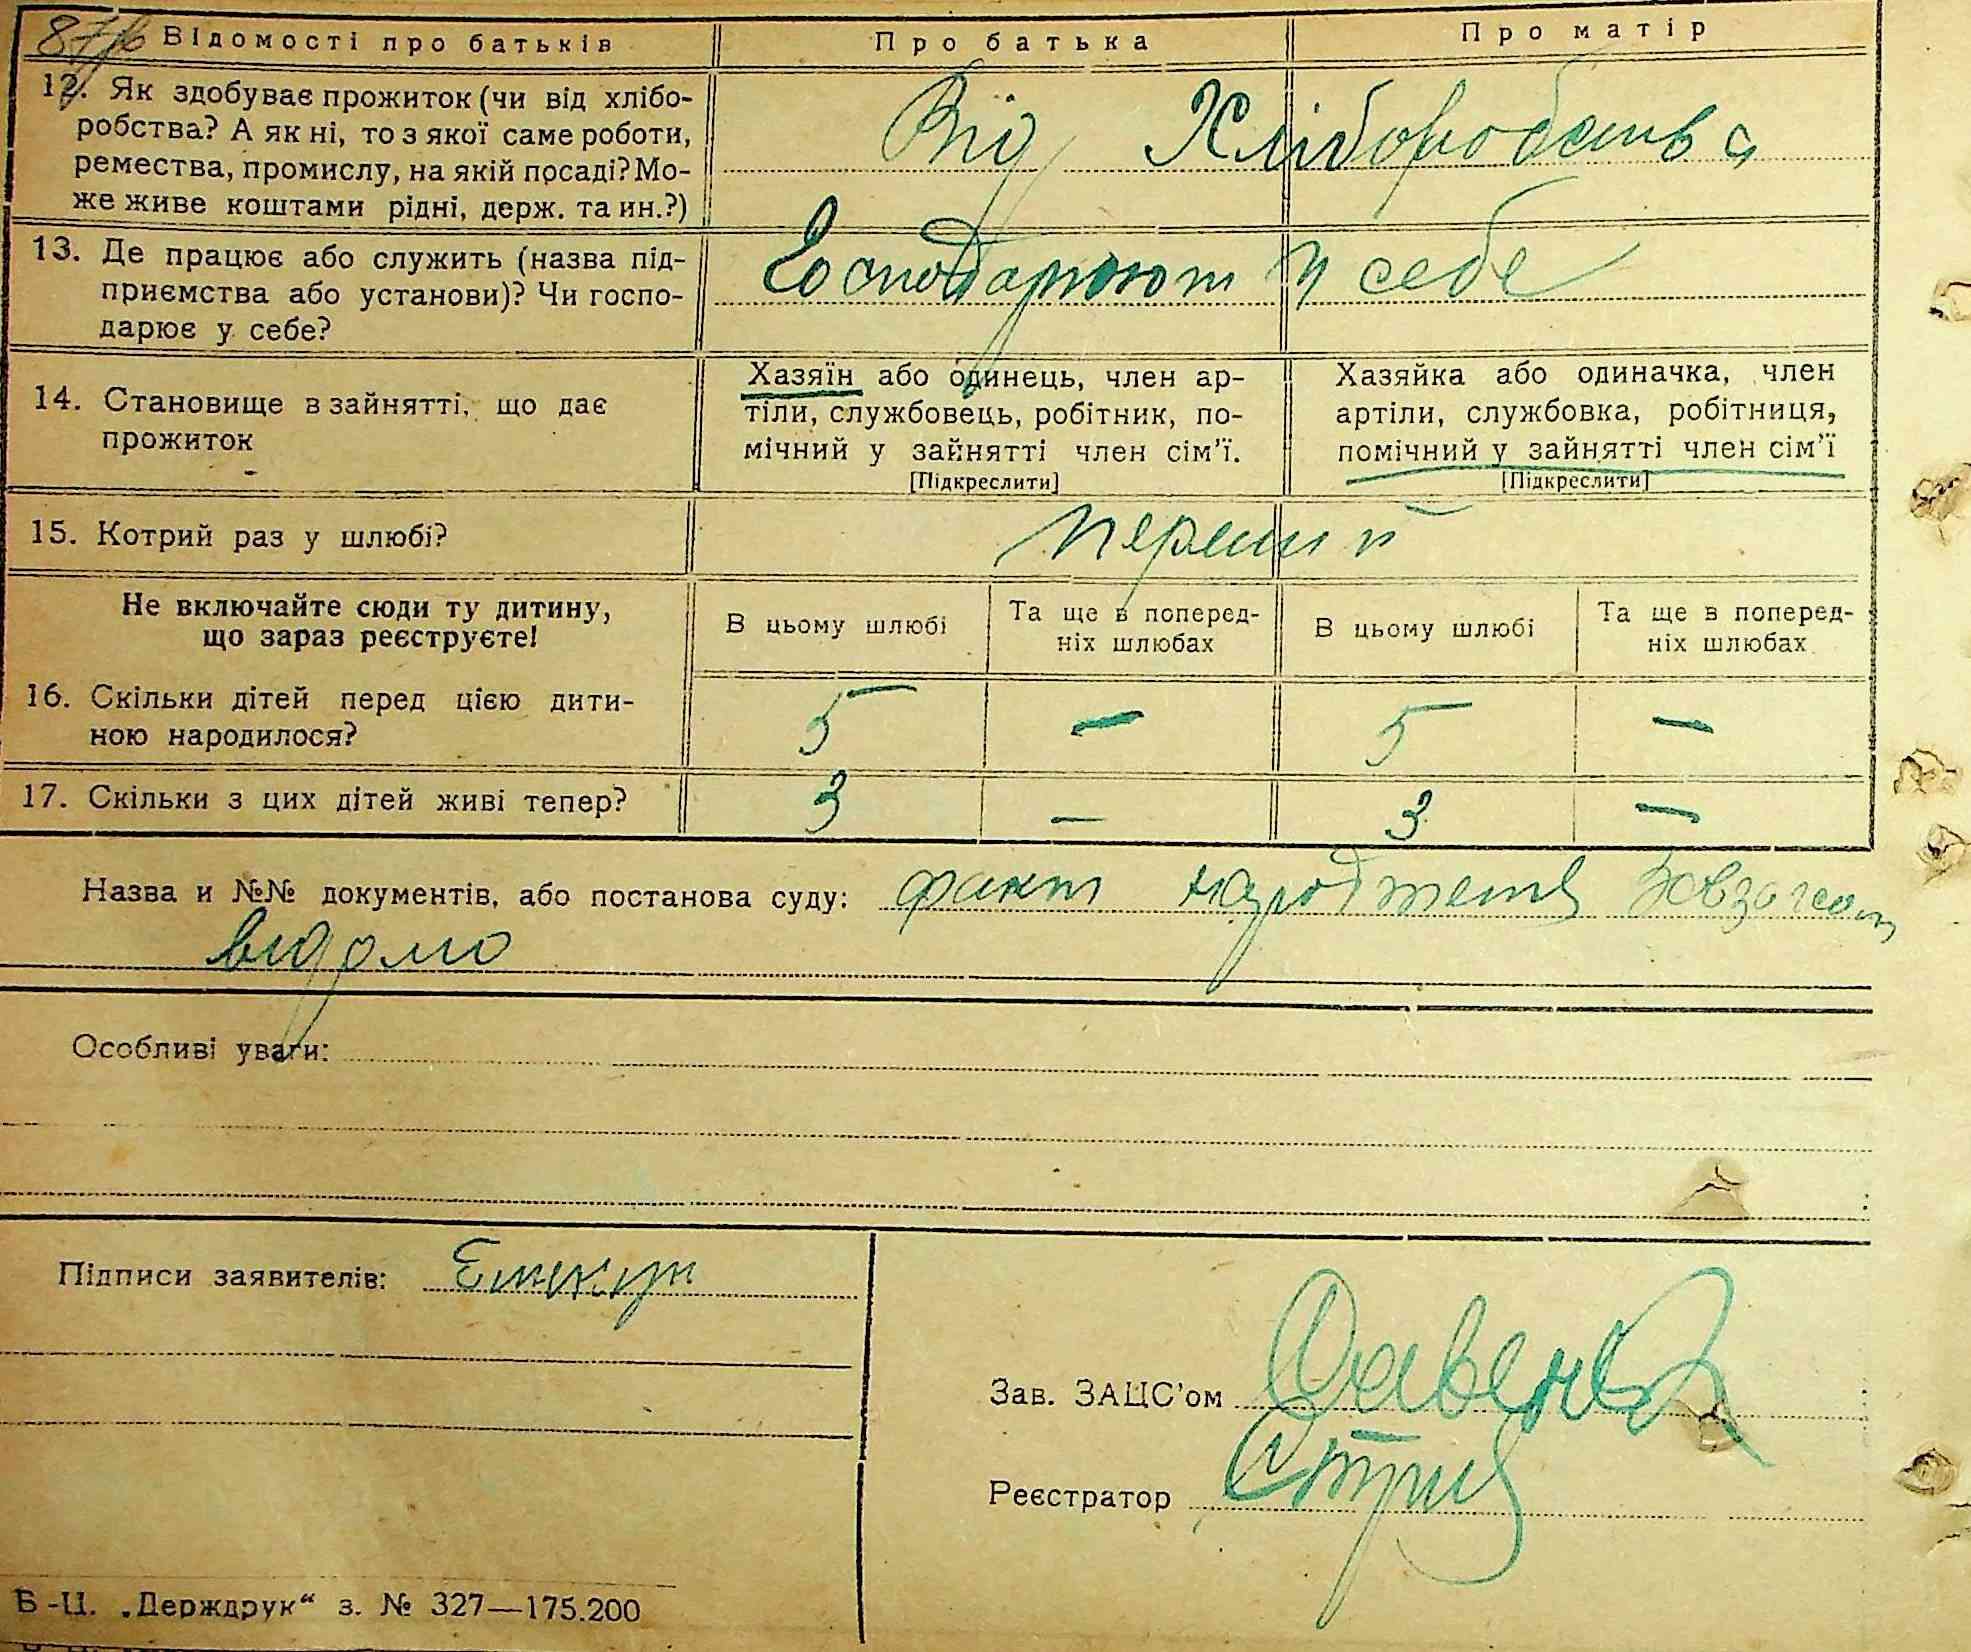 87 Відомості про батьків Про батька Про матір
12. Як здобуває прожиток (чи від хлібо-
робства? А як ні, то з якої саме роботи,
ремества, промислу, на якій посаді? Мо-
же живе коштами рідні, держ. та ин.?)
Від Хліборобства
13. Де працює або служить (назва під-
приємства або установи)? Чи госпо-
дарює у себе?
Господарюют у себе
14. Становище в зайнятті, що дає
прожиток
Хазяїн або одинець, член ар-
тіли, службовець, робітник, по-
мічний у зайнятті член сім'ї.
[Підкреслити]
Хазяйка або одиначка, член
артіли, службовка, робітниця,
помічний у зайнятті член сім'ї
[Підкреслити]
15. Котрий раз у шлюбі? перший
Не включайте сюди ту дитину,
що зараз реєструєте!
В цьому шлюбі
Та ще в поперед-
ніх шлюбах
В цьому шлюбі
Та ще в поперед-
ніх шлюбах
16. Скільки дітей перед цією дити-
ною народилося?
5 — 5 —
17. Скільки з цих дітей живі тепер? 3 — 3 —
Назва и №№ документів, або постанова суду: факт народження
відомо
Особливі уваги:
Підписи заявителів:
Зав. ЗАЦС'ом
Реєстратор
Б-Ц. „Держдрук“ з. № 327—175.200